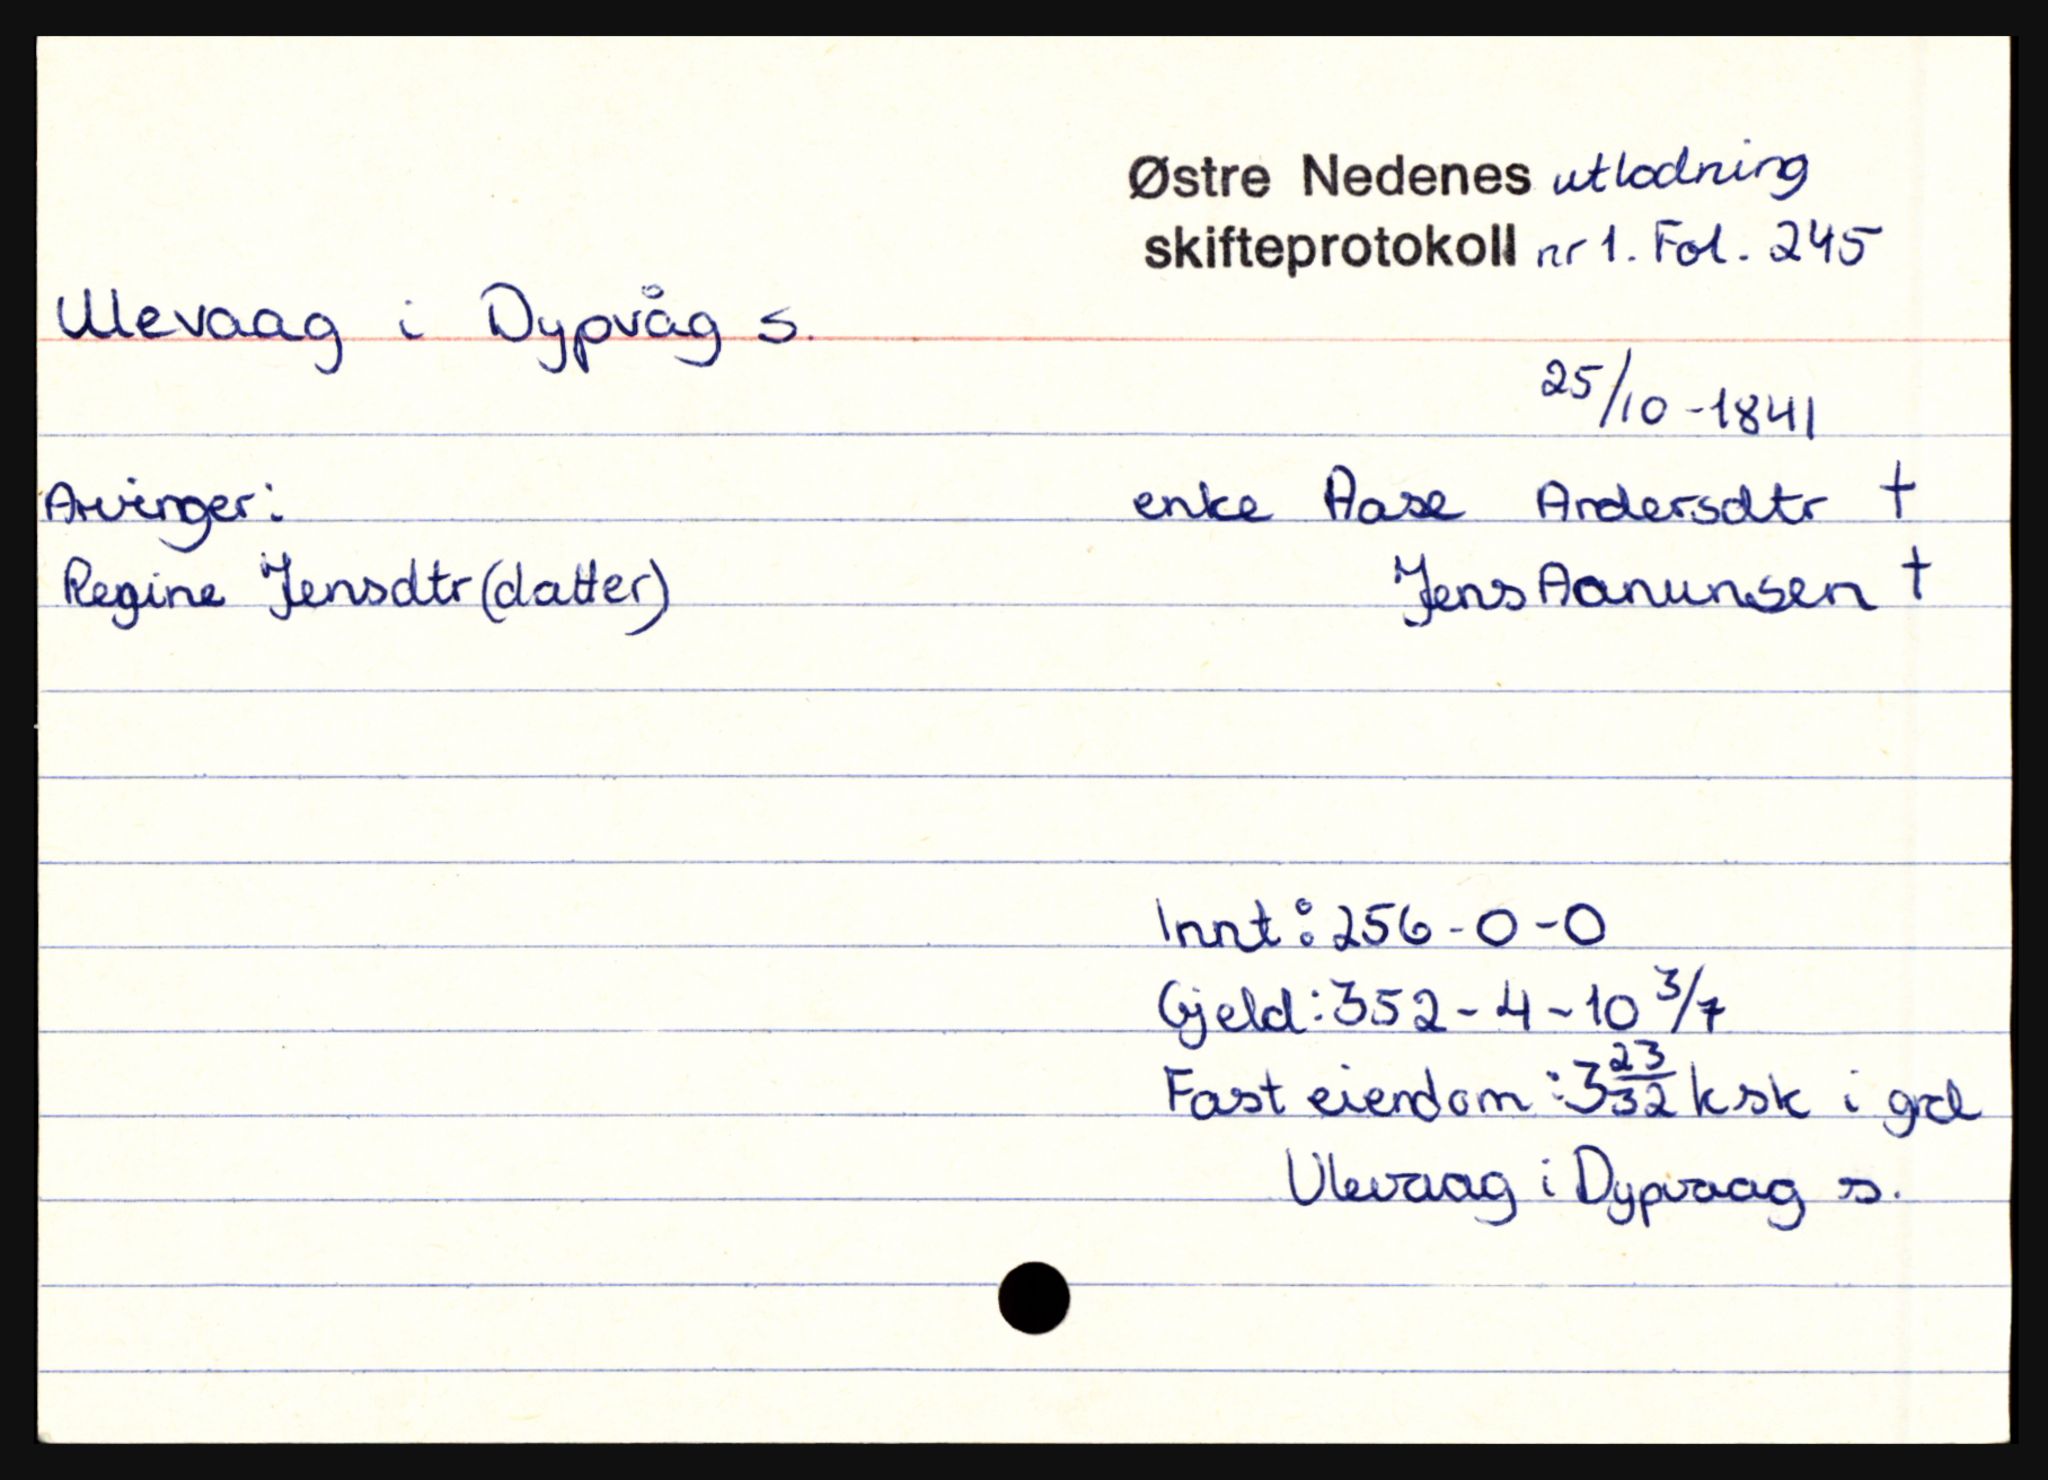 Østre Nedenes utlodning
skifteprotokoll nr 1. Fol. 245
Ulevaag i Dypvåg s.
25/10-1841
Arvinger: enke Aase Andersdtr †
Regine Jensdtr (datter) Jens Aanunsen †
Innt: 256-0-0
Gjeld: 352-4-10 3/7
Fast eiendom: 3 23/32 ksk i grd
Ulevaag i Dypvaag s.